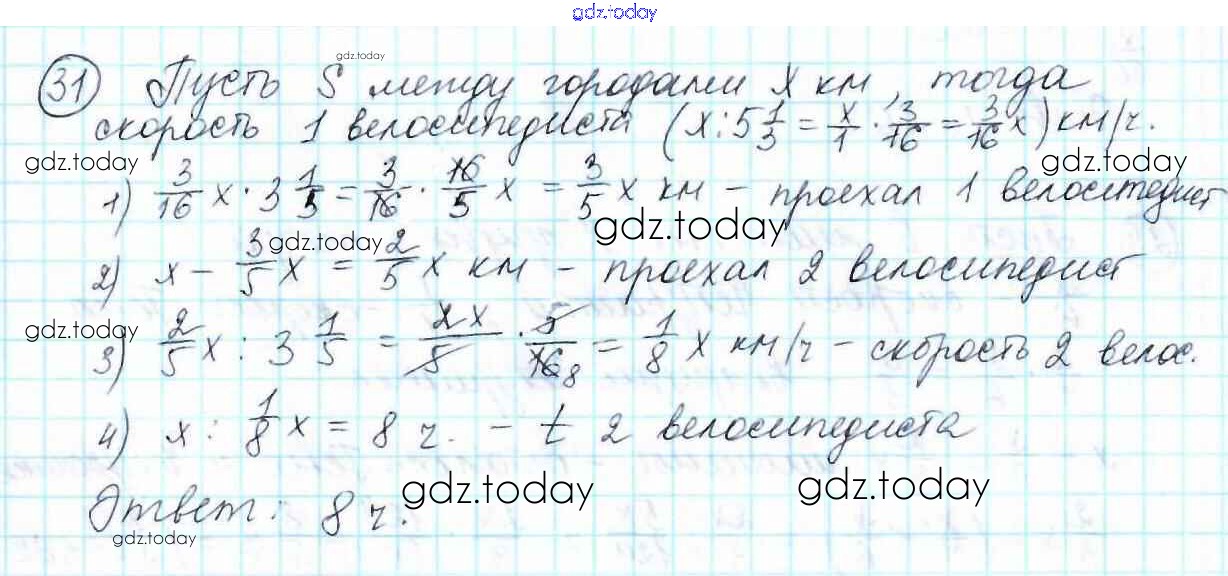 gdz.today
gdz.today
31 Пусть S между городами x км, тогда
скорость 1 велосипедиста (x : 5 1/3 = x/1 · 3/16 = 3/16 x) км/ч.
gdz.today
gdz.today
1) 3/16 x · 3 1/5 = 3/16 · 16/5 x = 3/5 x км – проехал 1 велосипедист
gdz.today
gdz.today
2) x – 3/5 x = 2/5 x км – проехал 2 велосипедист
gdz.today
3) 2/5 x : 3 1/5 = 2x/5 · 5/16 8 = 1/8 x км/ч – скорость 2 велос.
4) x : 1/8 x = 8 ч. – t 2 велосипедиста
gdz.today
gdz.today
Ответ: 8 ч.
gdz.today